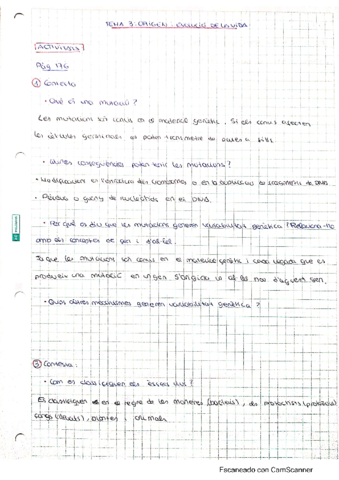 TEMA 3: ORIGEN I EVOLUCIÓ DE LA VIDA
ACTIVITATS
Pàg 176
① Contesta
• Què és una mutació?
Les mutacions són canvis en el material genètic. Si els canvis afecten
les cèl·lules germinals es poden transmetre de pares a fills.
• Quines conseqüències poden tenir les mutacions?
• Modificacions en l'estructura dels cromosomes o en la
• Pèrdua o guany de nucleòtids en el DNA.
• Per què es diu que les mutacions generen variabilitat genètica? Relaciona-ho
amb els conceptes de gen i d'al·lel.
Ja que les mutacions són canvis en el material genètic i cada vegada que es
produeix una mutació en un gen s'origina un al·lel nou d'aquest gen.
• Quins altres mecanismes generen variabilitat genètica?
② Contesta:
• Com es classifiquen els éssers vius?
Es classifiquen en el regne de les moneres (bacteris), els protoctists (protozous)
fongs, plantes i animals
Escaneado con CamScanner